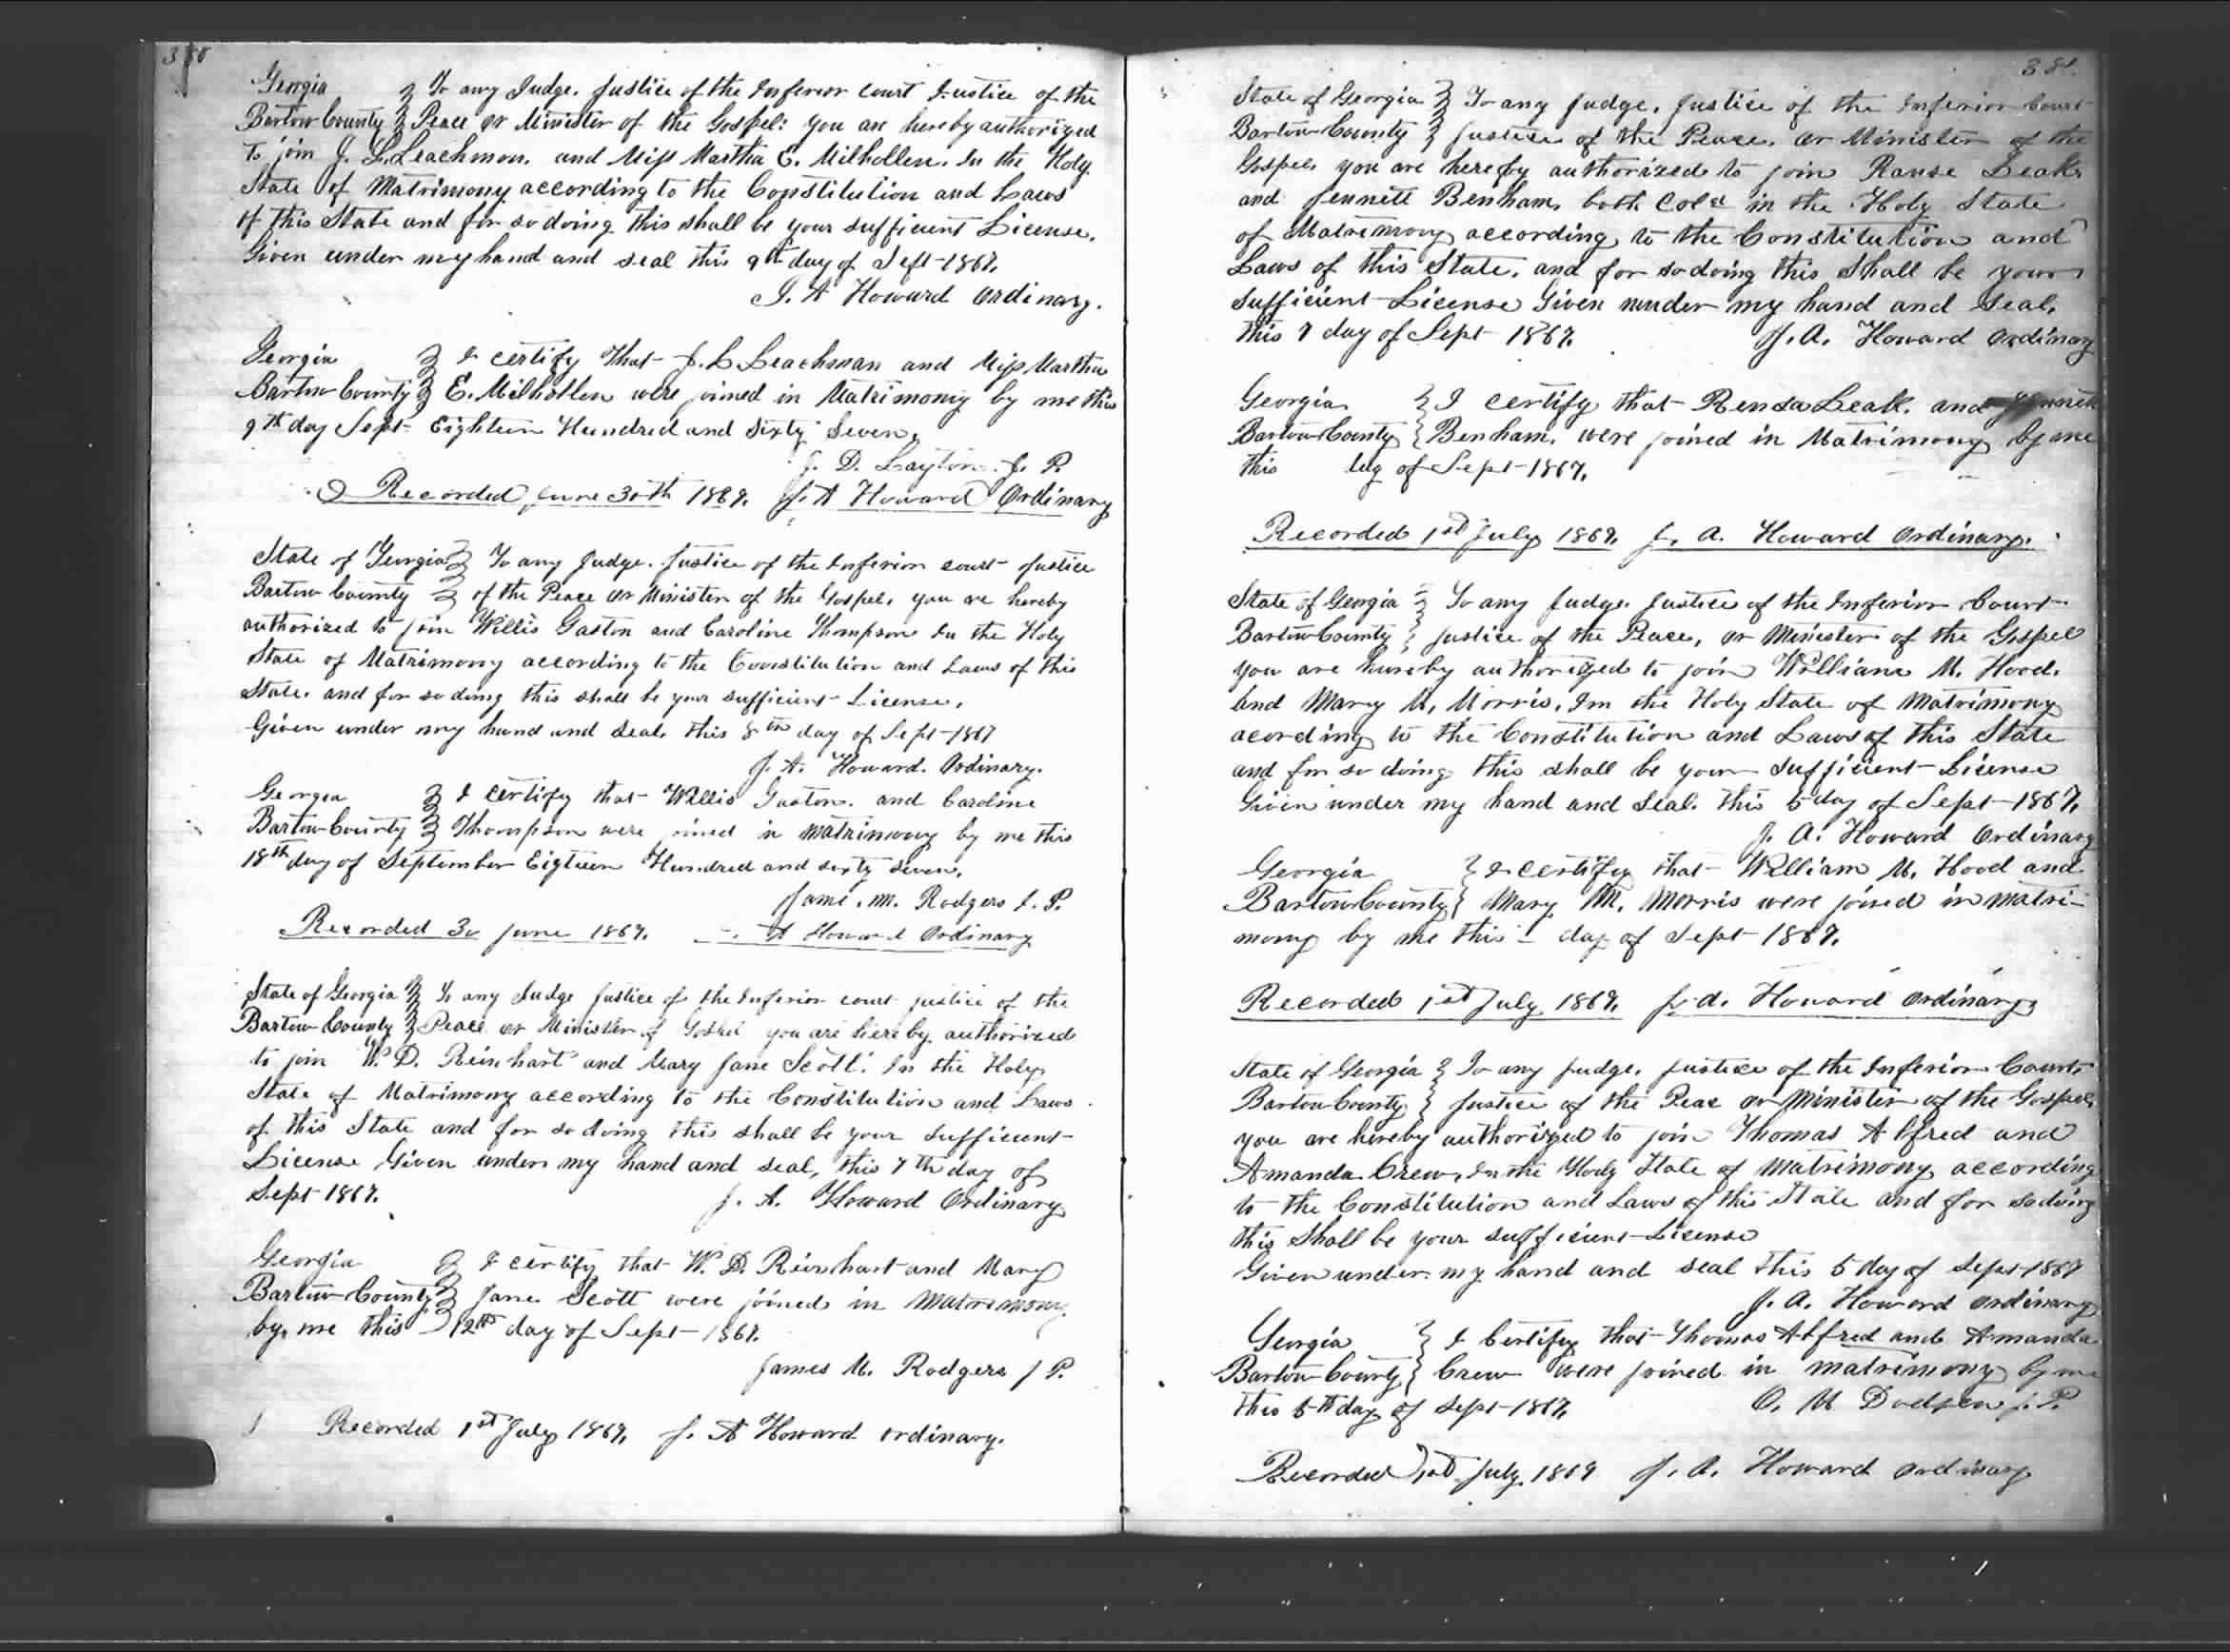 380
Georgia } To any Judge. Justice of the Inferior Court Justice of the
Bartow County } Peace or Minister of the Gospel: you are hereby authorized
to join J. L. Leachman. and Miss Martha E. Milhollen. In the Holy
State of Matrimony according to the Constitution and Laws
of this State and for so doing this shall be your sufficient License.
Given under my hand and seal this 9th day of Sept 1867.
J. A Howard Ordinary.
Georgia } I certify That J. L Leachman and Miss Martha
Bartow County } E. Milhollen were joined in Matrimony by me this
9th day Sept Eighteen Hundred and Sixty Seven,
J. D. Layton. J. P.
Recorded June 30th 1869. J. A Howard Ordinary
State of Georgia } To any Judge. Justice of the Inferior court Justice
Bartow County } of the Peace or Minister of the Gospel. you are hereby
authorized to join Willis Gaston and Caroline Thompson In the Holy
State of Matrimony according to the Constitution and Laws of this
State. and for so doing this shall be your sufficient License.
Given under my hand and seal. this 8th day of Sept 1867
J. A. Howard. Ordinary.
Georgia } I certify that Willis Gaston. and Caroline
Bartow County } Thompson were joined in matrimony by me this
18th day of September Eigteen Hundred and sixty seven.
James. M. Rodgers J. P.
Recorded 30 June 1869. A Howard Ordinary
State of Georgia } To any Judge Justice of the Inferior court justice of the
Bartow County } Peace or Minister of Gospel you are hereby authorized
to join W. D. Reinhart and Mary Jane Scott. In the Holy
State of Matrimony according to the Constitution and Laws
of this State and for so doing this shall be your sufficient
License Given under my hand and seal, this 7th day of
Sept 1867. J. A. Howard Ordinary
Georgia } I certify that W. D. Reinhart and Mary
Bartow County } Jane Scott were joined in Matrimony
by me this 12th day of Sept 1867.
James M. Rodgers J P.
Recorded 1st July 1869, J. A Howard ordinary.
381
State of Georgia } To any Judge, Justice of the Inferior Court
Bartow County } Justice of the Peace. or Minister of the
Gospel. you are hereby authorized to join Ranse Leak
and Jennett Benham, both Cold in the Holy State
of Matrimony according to the Constitution and
Laws of this State. and for so doing this Shall be your
sufficient License Given under my hand and seal.
this 7 day of Sept 1867. J. A. Howard Ordinary
Georgia } I certify that Rensa Leak. and Jennett
Bartow County } Benham. were joined in Matrimony by me
this day of Sept 1867.
Recorded 1st July 1869. J. A. Howard Ordinary.
State of Georgia } To any Judge. Justice of the Inferior Court
Bartow County } Justice of the Peace, or Minister of the Gospel
you are hereby authorized to join William M. Hood.
and Mary M. Morris. Im the Holy State of Matrimony
acording to the Constitution and Laws of this State
and for so doing this shall be your sufficient License
Given under my hand and seal. this 5 day of Sept 1867.
J. A. Howard Ordinary
Georgia } I certify that William M. Hood and
Bartow County } Mary M. Morris were joined in matri-
mony by me this day of Sept 1867.
Recorded 1st July 1869. J. A. Howard Ordinary
State of Georgia } To any judge. justice of the Inferior Court
Bartow County } Justice of the Peac or Minister of the Gospel,
you are hereby authorized to join Thomas Alfred and
Amanda Crew, In the Holy State of Matrimony according
to the Constitution and Laws of this State and for so doing
this Shall be your sufficient License
Given under my hand and seal this 5 day of Sept 1867
J. A. Howard Ordinary
Georgia } I Certify that Thomas Alfred and Amanda
Bartow County } Crew were joined in matrimony by me
this 5th day of Sept 1867. O. M Dodgen J. P.
Recorded 1st July 1869 J. A. Howard Ordinary